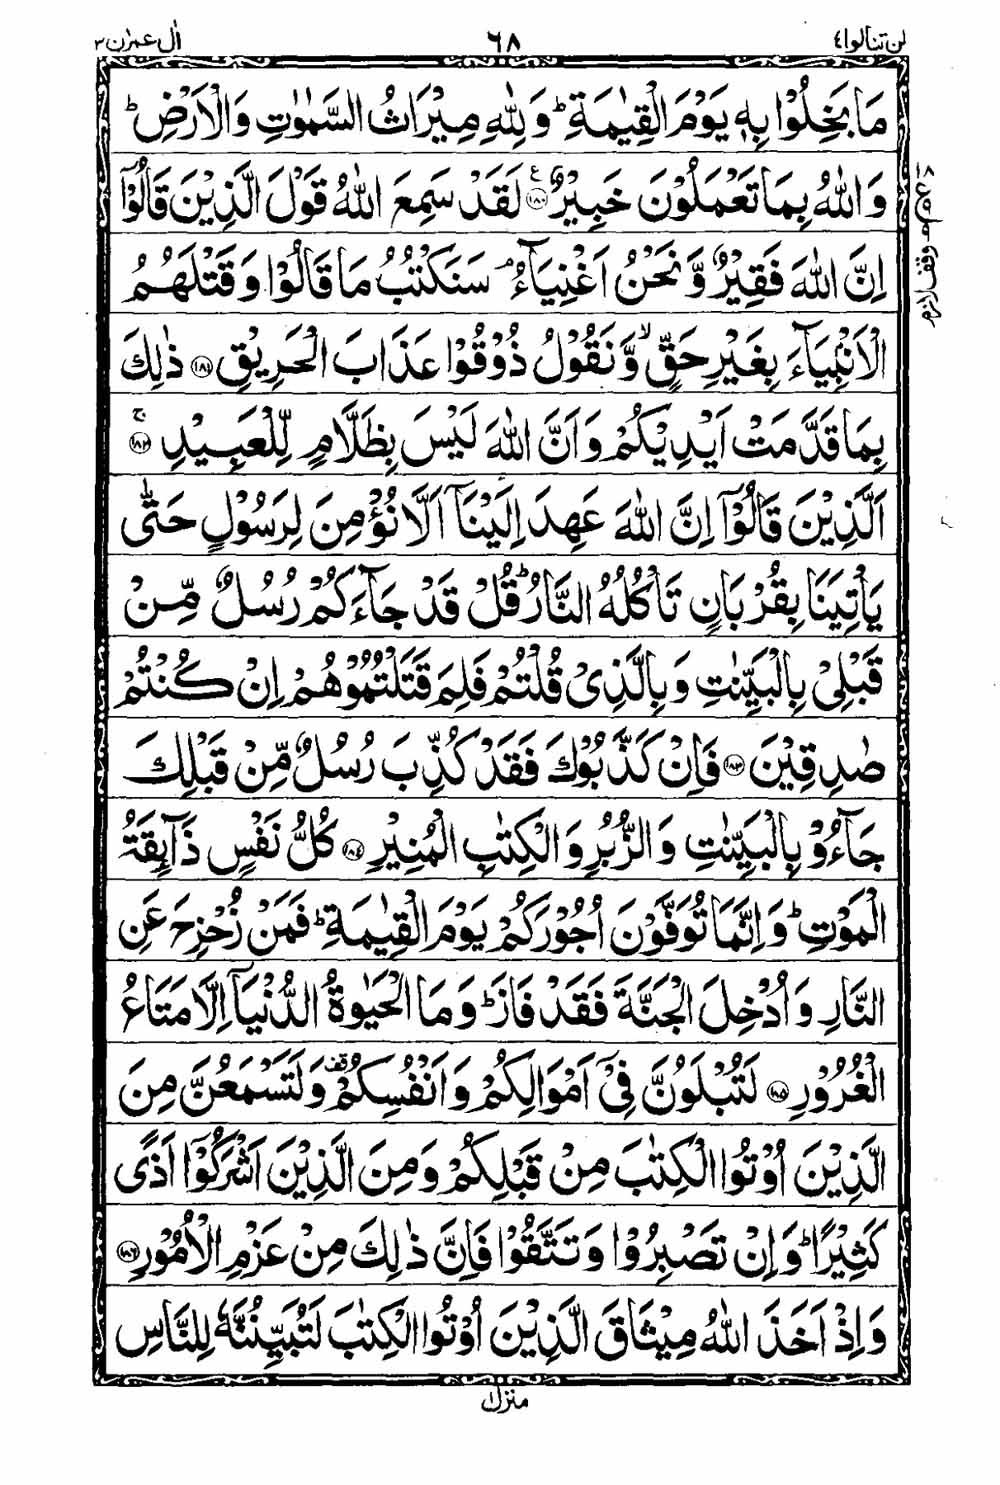 لن تنالوا ٤ ٦٨ اٰل عمرٰن ٣
مَا بَخِلُوْا بِهٖ يَوْمَ الْقِيٰمَةِ ؕ وَلِلّٰهِ مِيْرَاثُ السَّمٰوٰتِ وَالْاَرْضِ ؕ
وَاللّٰهُ بِمَا تَعْمَلُوْنَ خَبِيْرٌ ﴿١٨٠﴾ ع لَقَدْ سَمِعَ اللّٰهُ قَوْلَ الَّذِيْنَ قَالُوْۤا
اِنَّ اللّٰهَ فَقِيْرٌ وَّ نَحْنُ اَغْنِيَآءُ ۘ سَنَكْتُبُ مَا قَالُوْا وَقَتْلَهُمُ
الْاَنْۢبِيَآءَ بِغَيْرِ حَقٍّ ۙ وَّنَقُوْلُ ذُوْقُوْا عَذَابَ الْحَرِيْقِ ﴿١٨١﴾ ذٰلِكَ
بِمَا قَدَّمَتْ اَيْدِيْكُمْ وَاَنَّ اللّٰهَ لَيْسَ بِظَلَّامٍ لِّلْعَبِيْدِ ﴿١٨٢﴾ ۚ
اَلَّذِيْنَ قَالُوْۤا اِنَّ اللّٰهَ عَهِدَ اِلَيْنَاۤ اَلَّا نُؤْمِنَ لِرَسُوْلٍ حَتّٰى
يَاْتِيَنَا بِقُرْبَانٍ تَاْكُلُهُ النَّارُ ؕ قُلْ قَدْ جَآءَكُمْ رُسُلٌ مِّنْ
قَبْلِىْ بِالْبَيِّنٰتِ وَبِالَّذِىْ قُلْتُمْ فَلِمَ قَتَلْتُمُوْهُمْ اِنْ كُنْتُمْ
صٰدِقِيْنَ ﴿١٨٣﴾ فَاِنْ كَذَّبُوْكَ فَقَدْ كُذِّبَ رُسُلٌ مِّنْ قَبْلِكَ
جَآءُوْ بِالْبَيِّنٰتِ وَالزُّبُرِ وَالْكِتٰبِ الْمُنِيْرِ ﴿١٨٤﴾ كُلُّ نَفْسٍ ذَآئِقَةُ
الْمَوْتِ ؕ وَاِنَّمَا تُوَفَّوْنَ اُجُوْرَكُمْ يَوْمَ الْقِيٰمَةِ ؕ فَمَنْ زُحْزِحَ عَنِ
النَّارِ وَاُدْخِلَ الْجَنَّةَ فَقَدْ فَازَ ؕ وَمَا الْحَيٰوةُ الدُّنْيَاۤ اِلَّا مَتَاعُ
الْغُرُوْرِ ﴿١٨٥﴾ لَتُبْلَوُنَّ فِىْۤ اَمْوَالِكُمْ وَاَنْفُسِكُمْ قف وَلَتَسْمَعُنَّ مِنَ
الَّذِيْنَ اُوْتُوا الْكِتٰبَ مِنْ قَبْلِكُمْ وَمِنَ الَّذِيْنَ اَشْرَكُوْۤا اَذًى
كَثِيْرًا ؕ وَاِنْ تَصْبِرُوْا وَتَتَّقُوْا فَاِنَّ ذٰلِكَ مِنْ عَزْمِ الْاُمُوْرِ ﴿١٨٦﴾
وَاِذْ اَخَذَ اللّٰهُ مِيْثَاقَ الَّذِيْنَ اُوْتُوا الْكِتٰبَ لَتُبَيِّنُنَّهٗ لِلنَّاسِ
وقف لازم
منزل ١